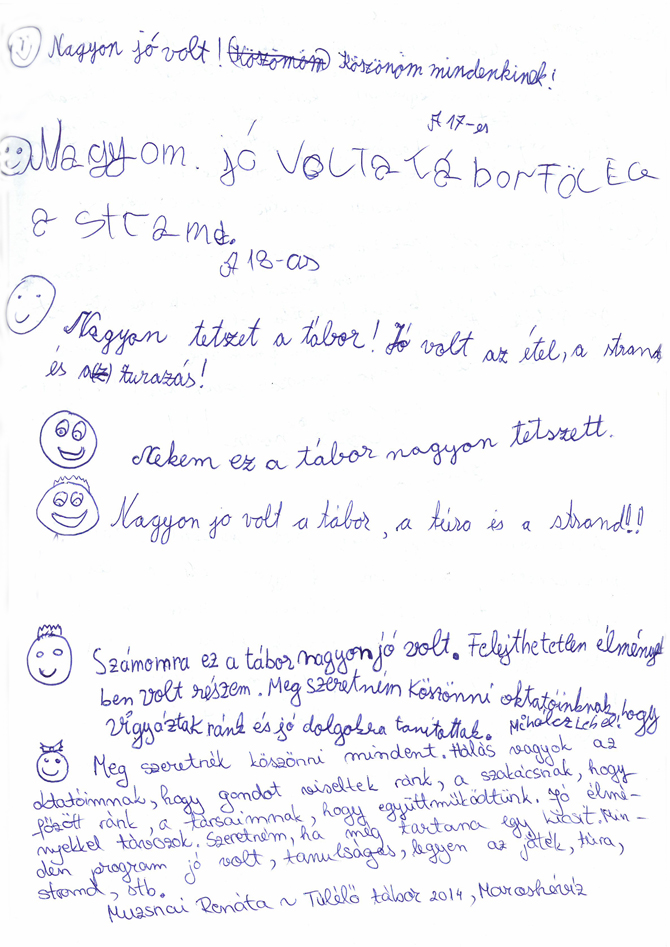 Nagyon jó volt! (Köszömöm) Köszönöm mindenkinek!
A 17-es
Nagyom. jó VOLTA TÁborFŐLEG
a strand.
A 18-as
Nagyon tetszet a tábor! Jó volt az étel, a strand,
és a(z) turazás!
Nekem ez a tábor nagyon tetszett.
Nagyon jo volt a tábor, a túro és a strand!!
Számomra ez a tábor nagyon jó volt. Felejthetetlen élmény
ben volt részem. Meg szeretném köszönni oktatóinknak, hogy
vigyáztak ránk és jó dolgokra tanitottak.
Meg szeretnék köszönni mindent. Hálás vagyok az
oktatóimnak, hogy gondot viseltek ránk, a szakácsnak, hogy
főzött ránk, a társaimmak, hogy együttműködtünk. Jó élmé-
nyekkel távozok. Szeretném, ha még tartana egy kicsit. Min-
den program jó volt, tanulságos, legyen az játék, túra,
strand, stb.
Muzsnai Renáta ~ Túlélő tábor 2014, Maroshévíz